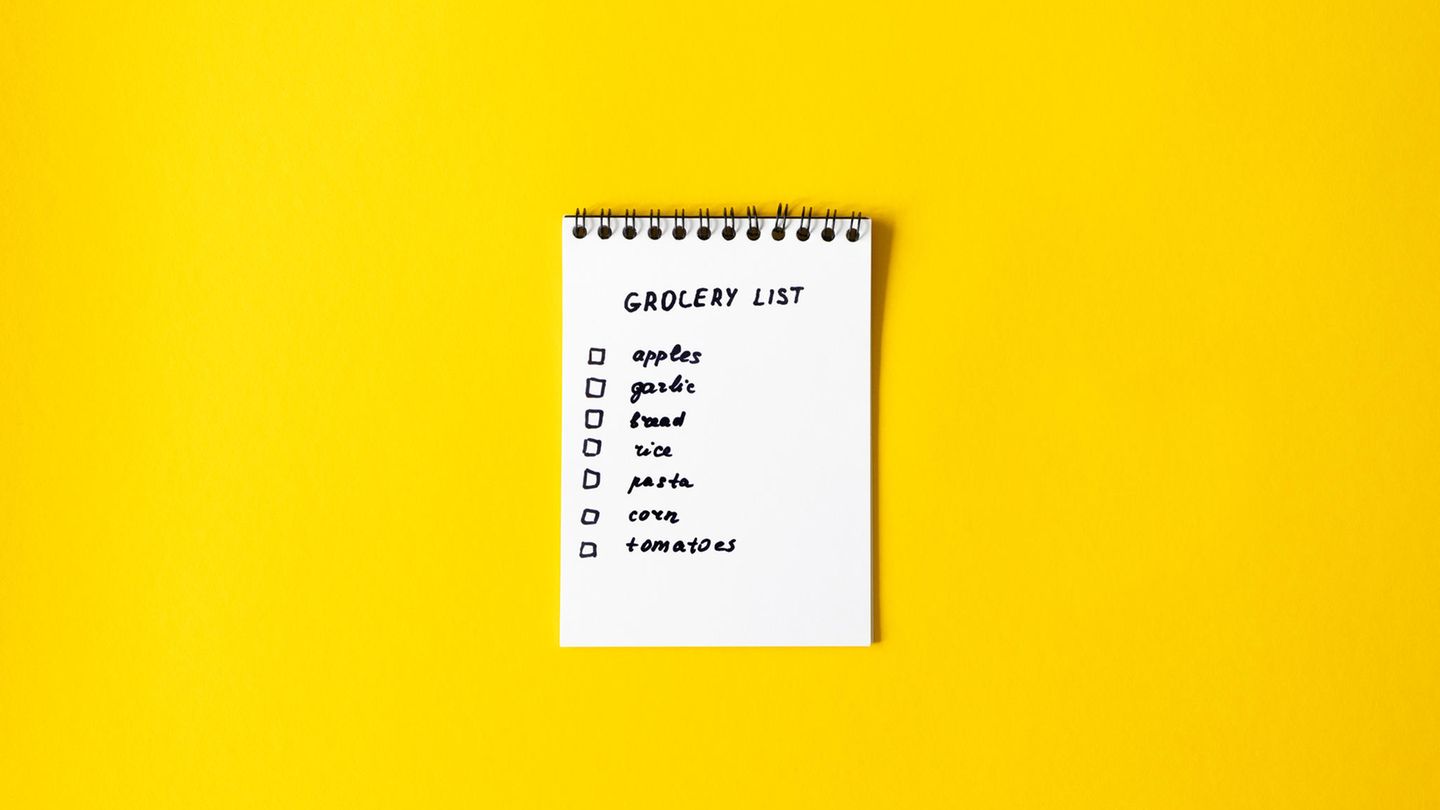 GROCERY LIST
apples
garlic
bread
rice
pasta
corn
tomatoes